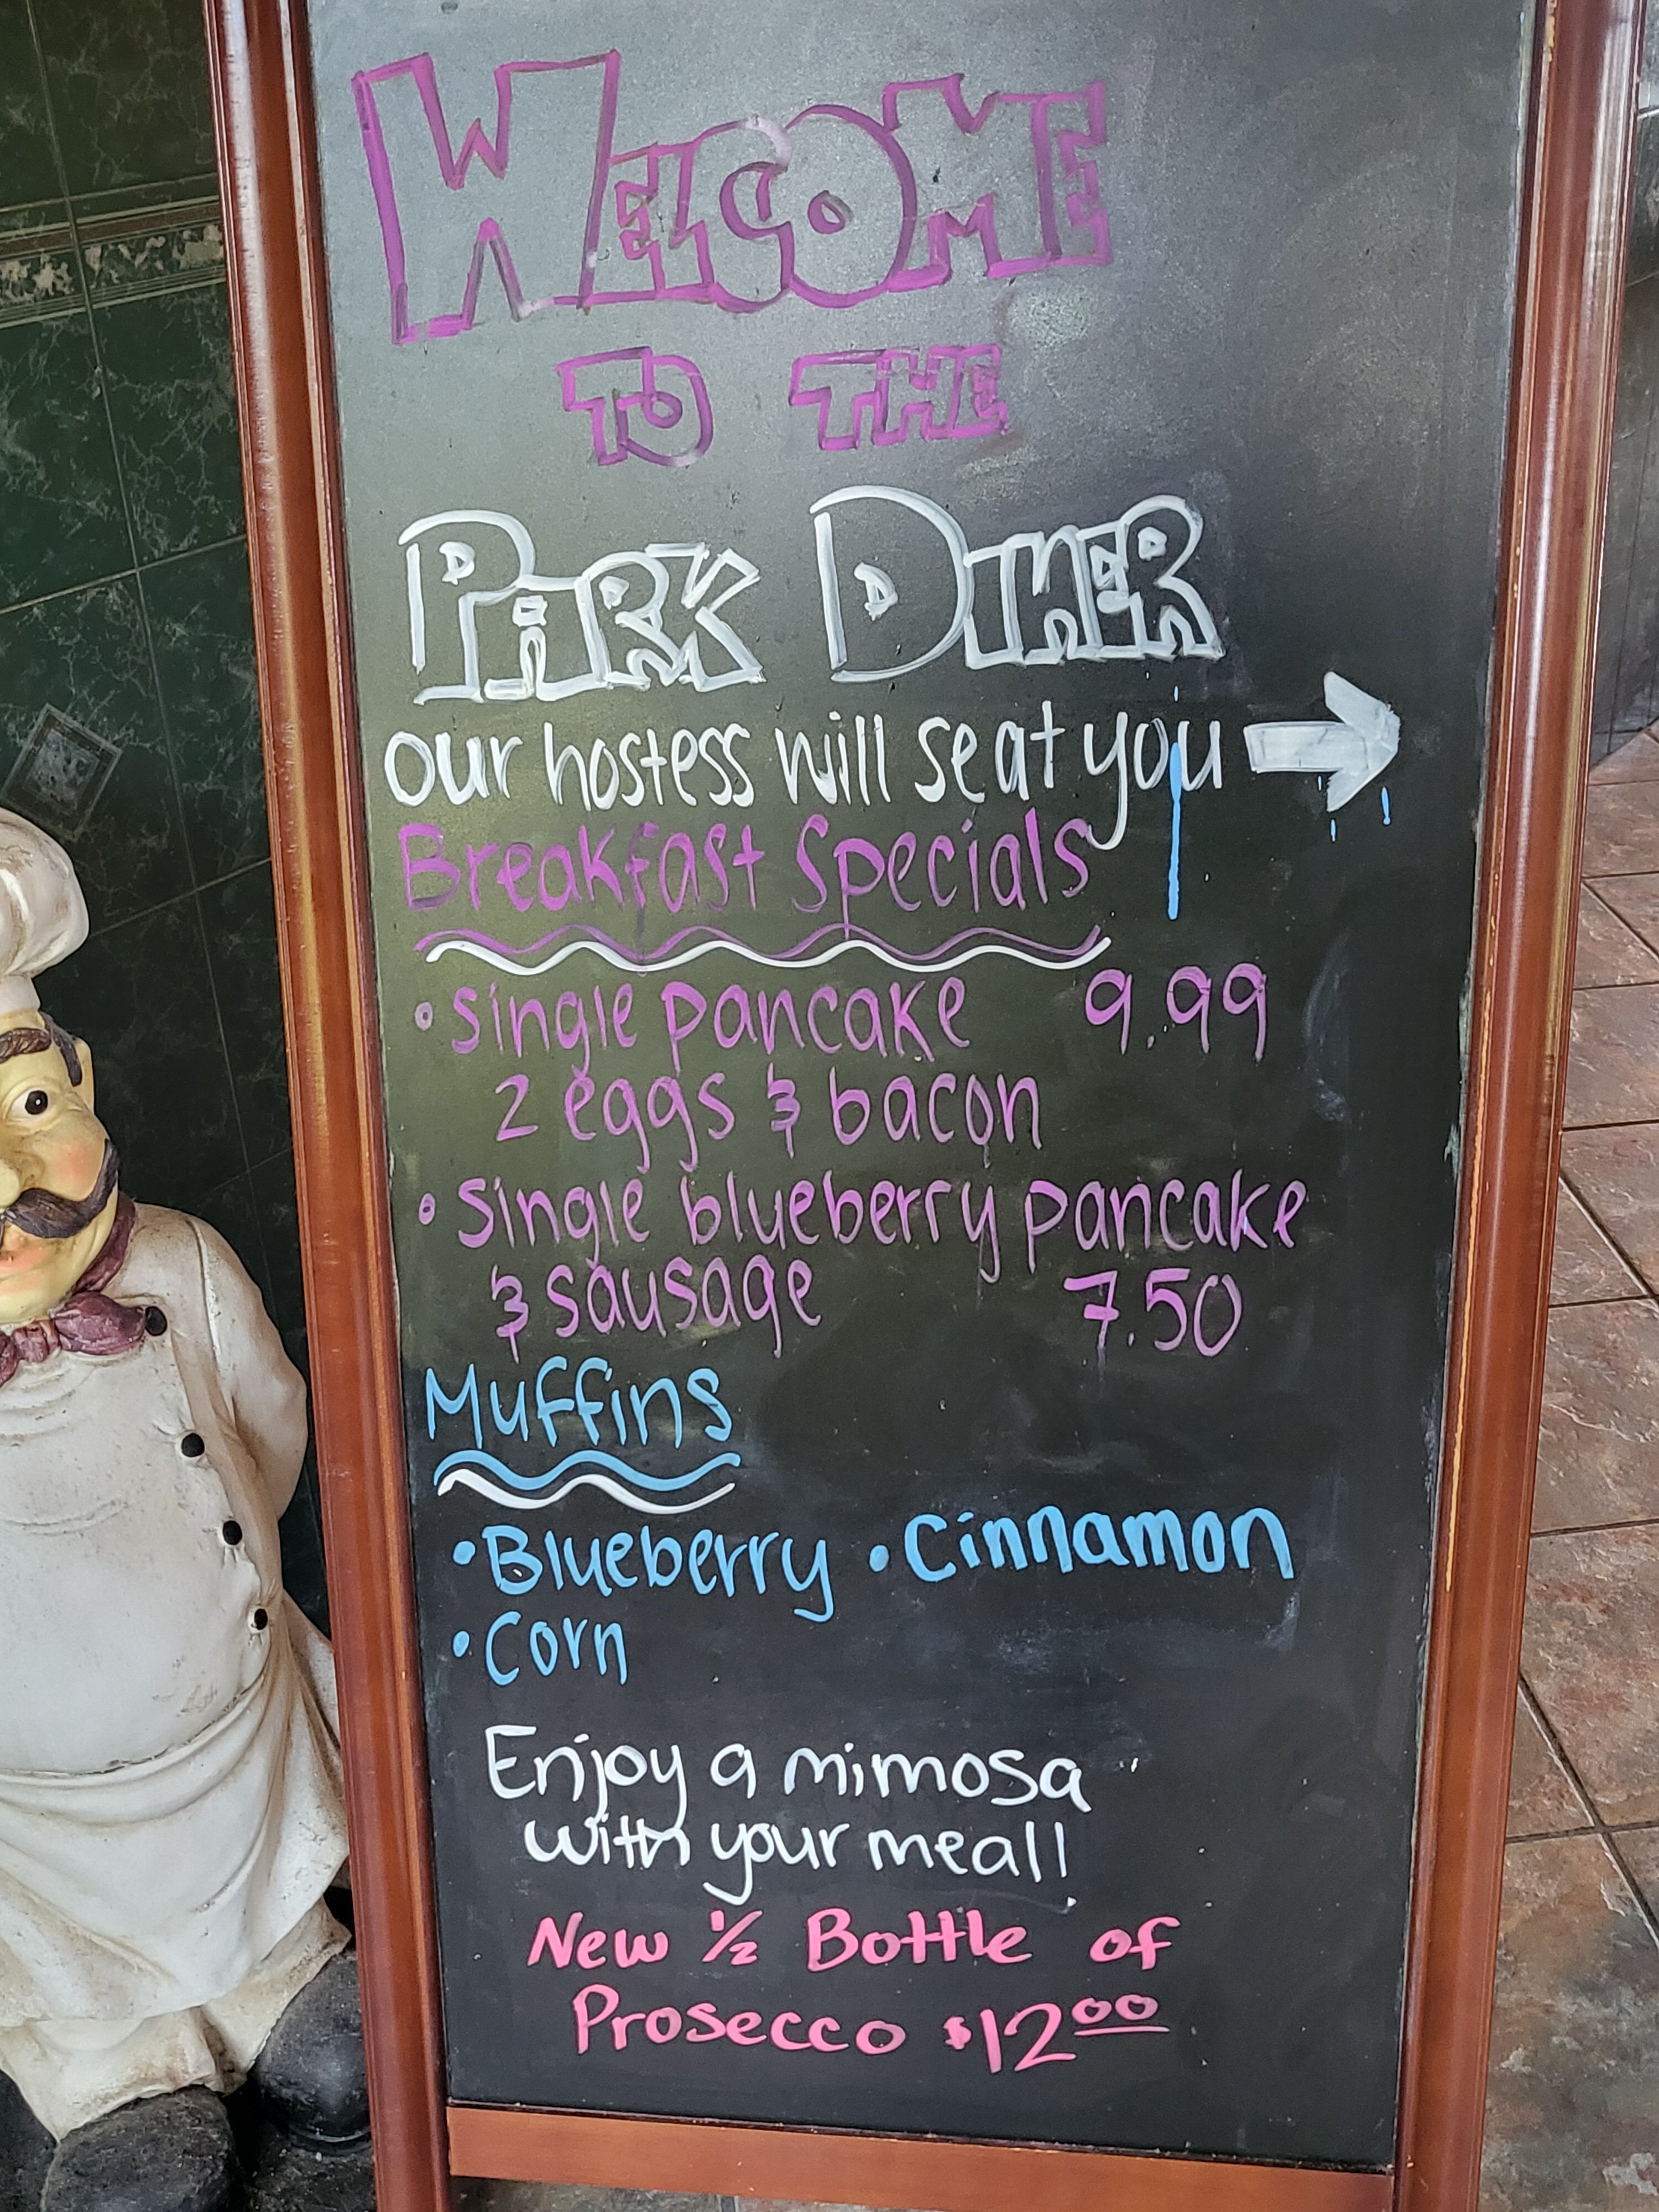 WELCOME
TO THE
PARK DINER
our hostess will seat you
Breakfast Specials
• Single pancake 9.99
2 eggs & bacon
• Single blueberry pancake
& sausage 7.50
Muffins
• Blueberry • Cinnamon
• Corn
Enjoy a mimosa
with your meal!
New ½ Bottle of
Prosecco $12.00